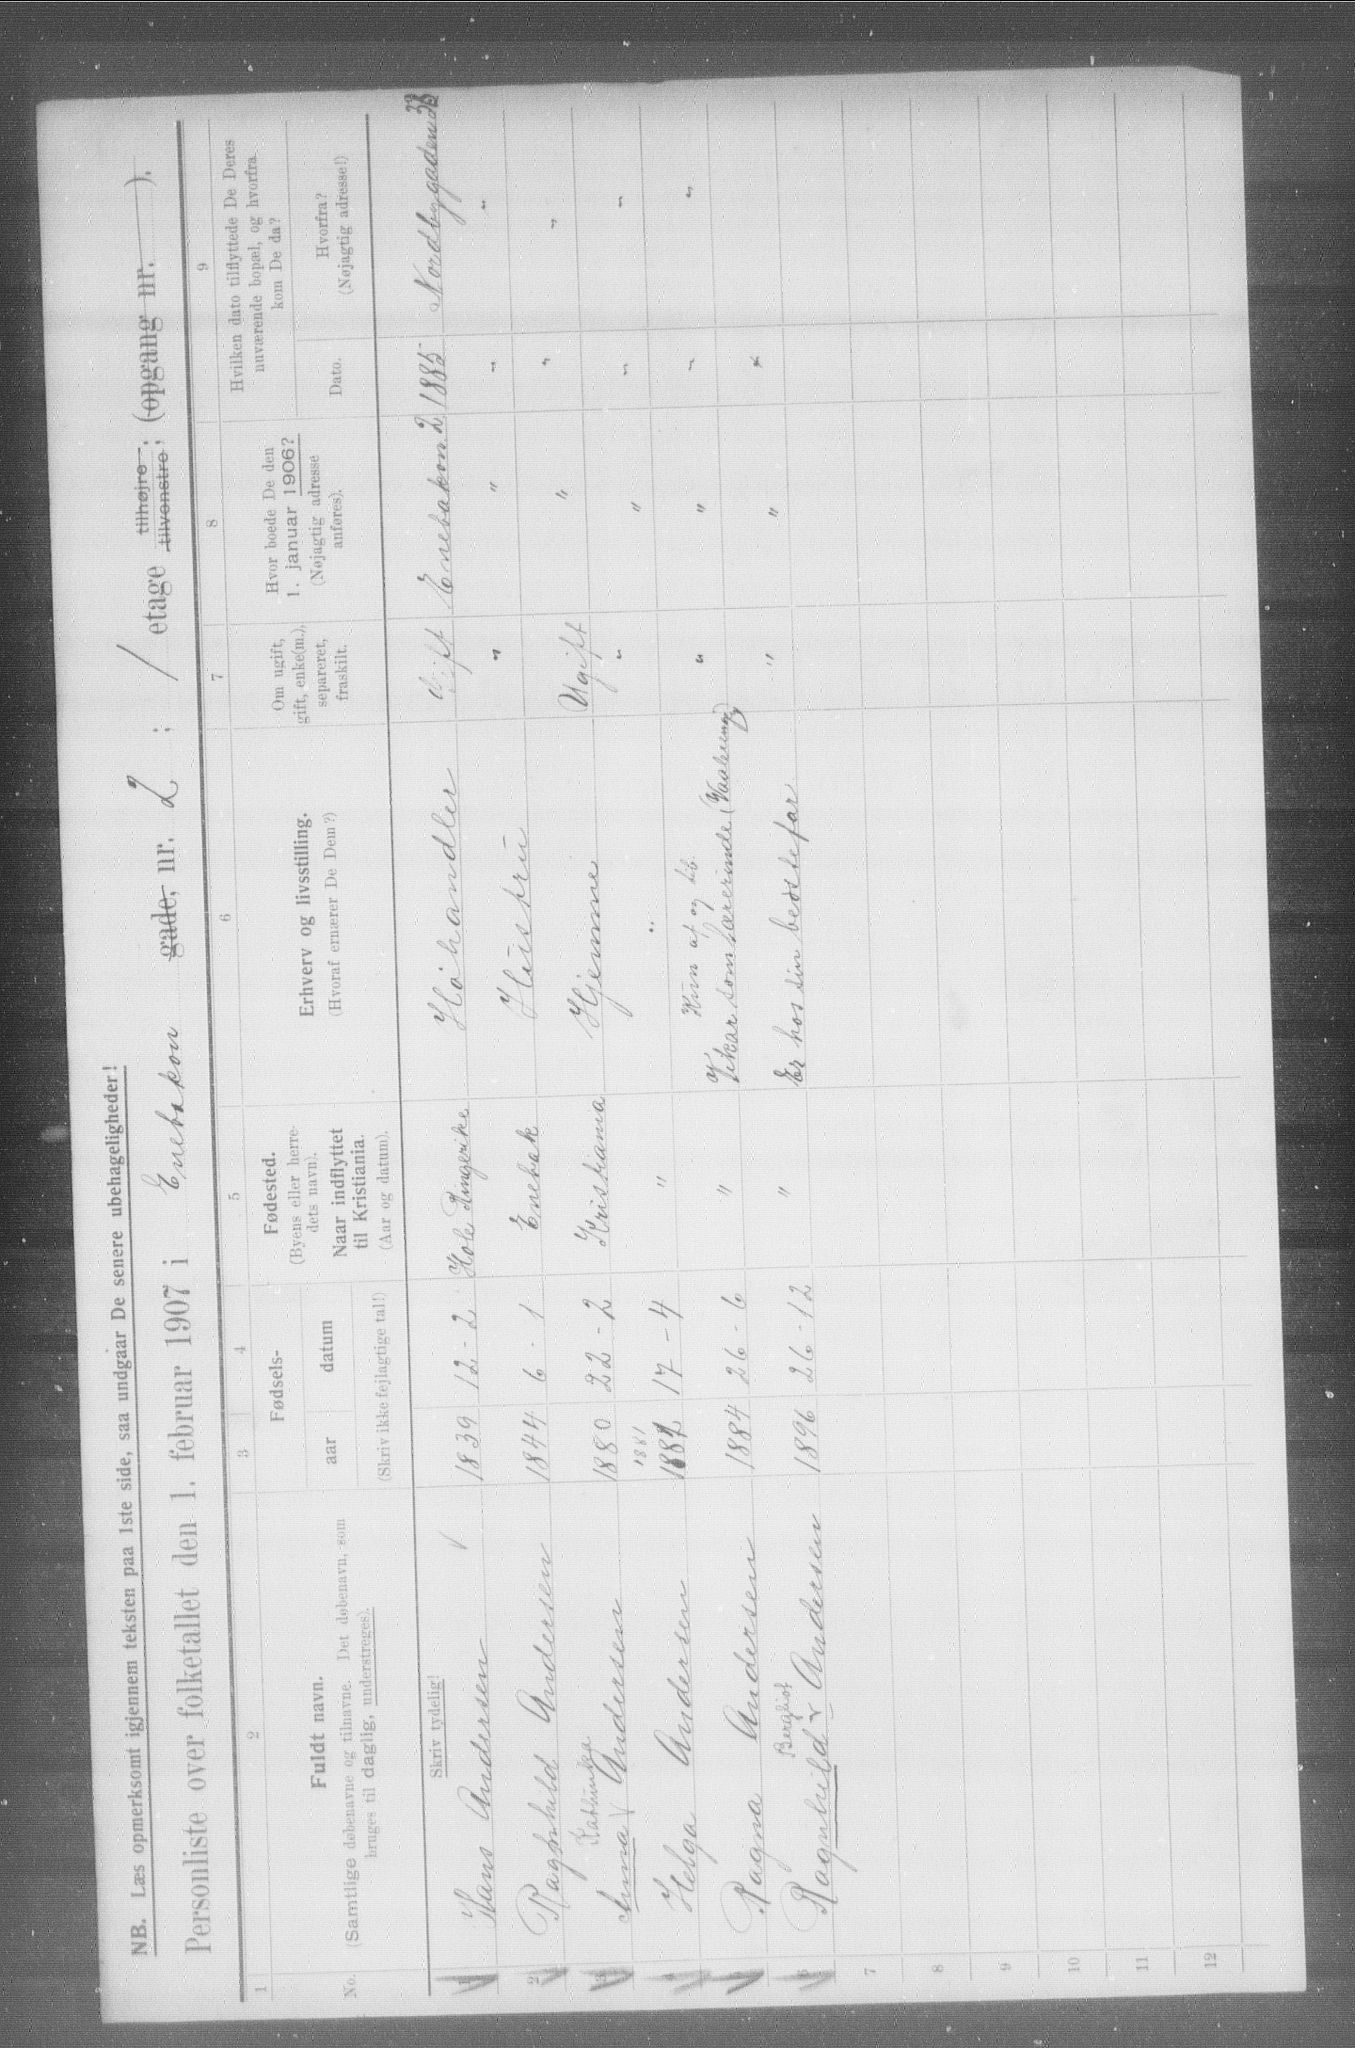 NB. Læs opmerksomt igjennem teksten paa 1ste side, saa undgaar De senere ubehageligheder!
Personliste over folketallet den 1. februar 1907 i Enebakon gade, nr. 2 ; 1 etage tilhøjre ; tilvenstre ; (opgang nr. ).
1 2 3 4 5 6 7 8 9
No.
Fuldt navn.
(Samtlige døbenavne og tilnavne. Det døbenavn, som
bruges til daglig, understreges).
Fødsels-
aar datum
(Skriv ikke fejlagtige tal!)
Fødested.
(Byens eller herre-
dets navn).
Naar indflyttet
til Kristiania.
(Aar og datum).
Erhverv og livsstilling.
(Hvoraf ernærer De Dem?)
Om ugift,
gift, enke(m.),
separeret,
fraskilt.
Hvor boede De den
1. januar 1906?
(Nøjagtig adresse
anføres).
Hvilken dato tilflyttede De Deres
nuværende bopæl, og hvorfra
kom De da?
Dato.
Hvorfra?
(Nøjagtig adresse!)
Skriv tydelig!
1 Hans Andersen 1839 12 - 2 Hole Ringerike Høhandler Gift Enebakon 2 1885 Nordbygaden 33
2 Ragnhild Andersen 1844 6 - 1 Enebak Hustru " " " "
Kathinka
3 Anna Andersen 1880 22 - 2 Kristiania Hjemme Ugift " " "
1881
4 Helga Andersen 1882 17 - 4 " " " " " "
Kun af og til
5 Ragna Andersen 1884 26 - 6 " Vikar som Lærerinde (Vaalereng) " " " "
Bergliot
6 Ragnhild Andersen 1896 26 - 12 " Er hos sin bedstefar " " "
7
8
9
10
11
12